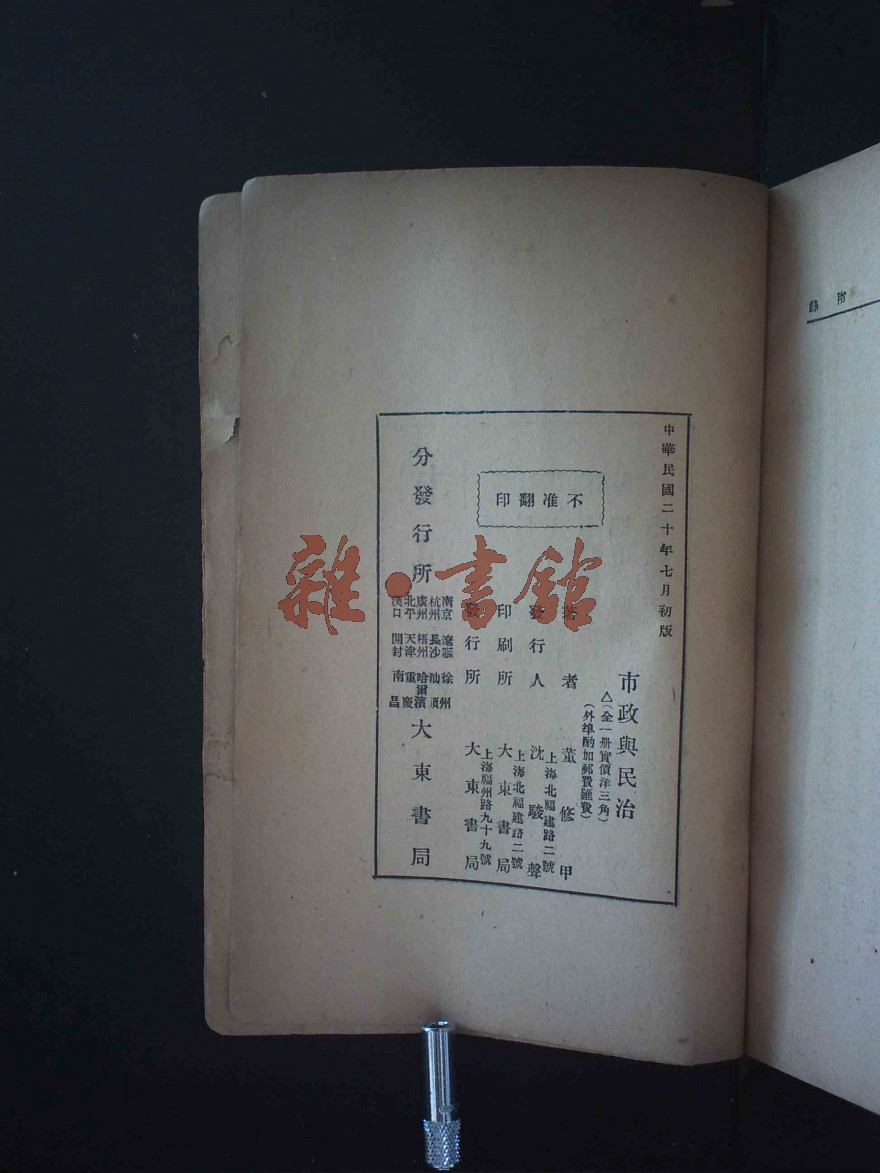 中華民國二十年七月初版
市政與民治
△(全一册實價洋三角)
(外埠酌加郵費匯費)
不准翻印
著者 董修甲
發行人 沈駿聲
上海北福建路二號
印刷所 大東書局
上海北福建路二號
發行所 大東書局
上海福州路九十九號
分發行所
南京 遼寧 徐州
杭州 長沙 汕頭
廣州 梧州 哈爾濱
北平 天津 重慶
漢口 開封 南昌
大東書局
雜·書館
附